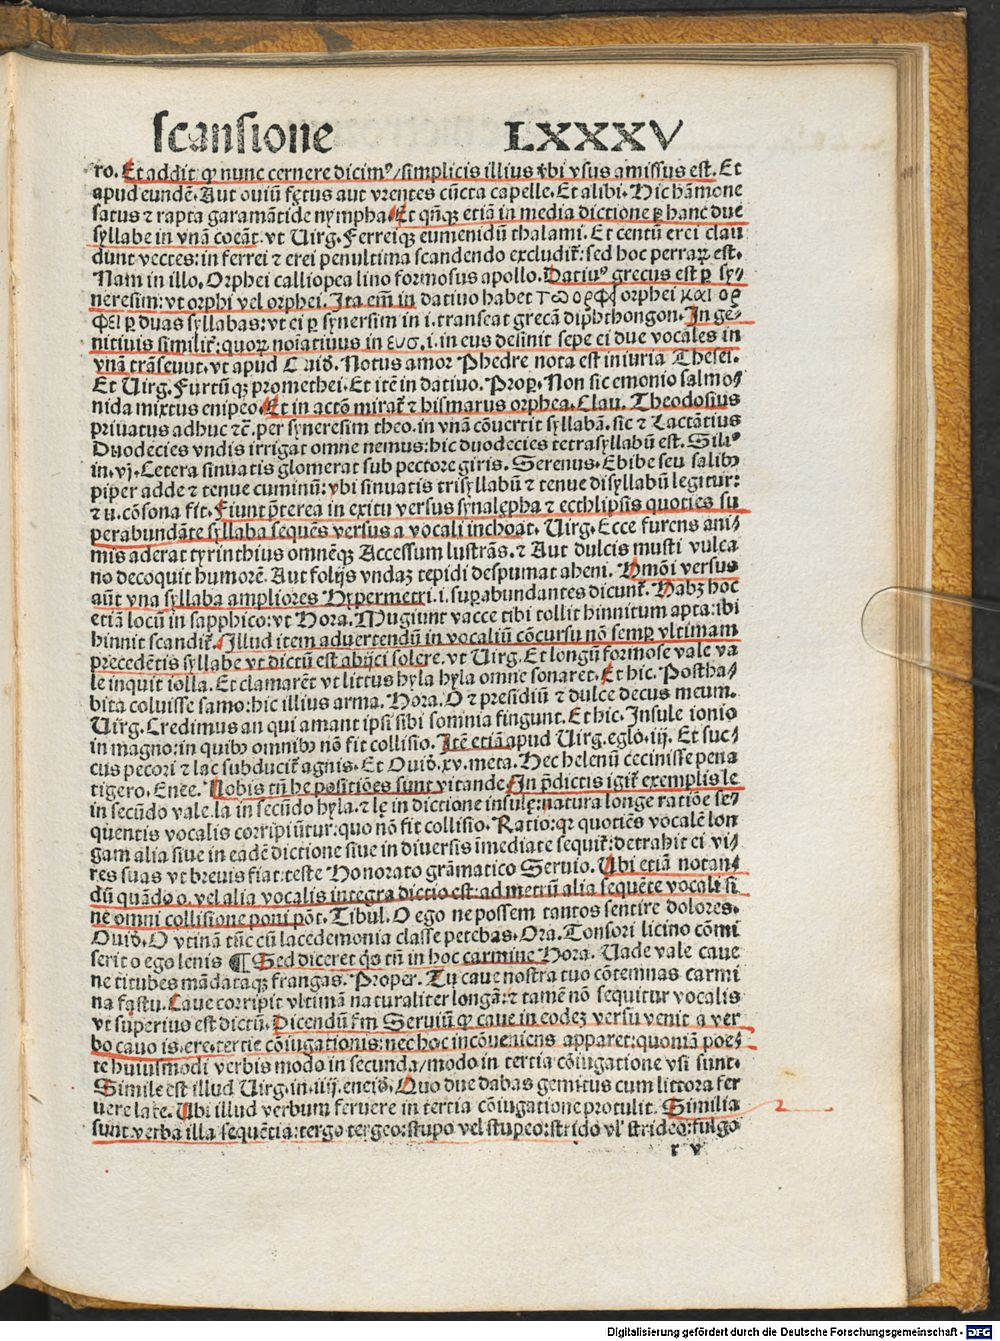 scansione LXXXV
ro. Et addit qꝫ nunc cernere dicimꝰ/ simplicis illius vbi vsus amissus est. Et
apud eundē. Aut ouiū fętus aut vrentes cūcta capelle. Et alibi. Hic hāmone
satus ⁊ rapta garamātide nympha. Et qn̄qꝫ etiā in media dictione ꝑ hanc due
syllabe in vnā coeāt. vt Uirg. Ferreiqꝫ eumenidū thalami. Et centū erei clau
dunt vectes: in ferrei ⁊ erei penultima scandendo excludit̃: sed hoc perrarꝝ est.
Nam in illo. Orphei calliopea lino formosus apollo. Datiuꝰ grecus est ꝑ sy⸗
neresim: vt orphi vel orphei. Ita em̄ in datiuo habet τω ορφι orphei και ορ
φει ꝑ duas syllabas: vt ei ꝑ synersim in i. transeat grecā diphthongon. In ge⸗
nitiuis similit̃: quorꝝ noiatiuus in ευσ. i. in eus desinit sepe ei due vocales in
vnā trāseuut. vt apud Ouid̄. Notus amor Phedre nota est iniuria Thesei.
Et Uirg. Furtūqꝫ promethei. Et itē in datiuo. Proꝑ. Non sic emonio salmo⸗
nida mixtus enipeo. Et in actō mirat̃ ⁊ bismarus orphea. Clau. Theodosius
priuatus adhuc ⁊c̄. per syneresim theo. in vnā cōuertit syllabā. sic ⁊ Lactātius
Duodecies vndis irrigat omne nemus: hic duodecies tetrasyllabū est. Siliꝰ
in. vj. Cetera sinuatis glomerat sub pectore giris. Serenus. Ebibe seu salibꝫ
piper adde ⁊ tenue cuminū: vbi sinuatis trisyllabū ⁊ tenue disyllabū legitur:
⁊ u. cōsona fit. Fiunt p̄terea in exitu versus synalępha ⁊ ecthlipsis quoties su
perabundāte syllaba sequēs versus a vocali inchoat. Uirg. Ecce furens ani⸗
mis aderat tyrinthius omnēqꝫ Accessum lustrās. ⁊ Aut dulcis musti vulca
no decoquit humorē. Aut folijs vndaꝫ tepidi despumat aheni. Hmōi versus
aūt vna syllaba ampliores Hypermetri. i. suꝑabundantes dicunt̃. Habꝫ hoc
etiā locū in sapphico: vt Hora. Mugiunt vacce tibi tollit hinnitum apta: ibi
hinnit scandit̃. Illud item aduertendū in vocaliū cōcursu nō semꝑ vltimam
precedētis syllabe vt dictū est abijci solere. vt Uirg. Et longū formose vale va
le inquit iolla. Et clamarēt vt littus hyla hyla omne sonaret. Et hic. Postha⸗
bita coluisse samo: hic illius arma. Hora. O ⁊ presidiū ⁊ dulce decus meum.
Uirg. Credimus an qui amant ipsi sibi somnia fingunt. Et hic. Insule ionio
in magno: in quibꝫ omnibꝫ nō fit collisio. Itē etiā apud Uirg. eglo. iij. Et suc⸗
cus pecori ⁊ lac subducit̃ agnis. Et Ouid̄. xv. meta. Hec helenū cecinisse pena
tigero. Enee. Nobis tn̄ he positiōes sunt vitande. In p̄dictis igit̃ exemplis le
in secūdo vale. la in secūdo hyla. ⁊ lę in dictione insulę: natura longe ratiōe se⸗
quentis vocalis corripiūtur: quo nō fit collisio. Ratio: qꝛ quotiēs vocalē lon
gam alia siue in eadē dictione siue in diuersis īmediate sequit̃: detrahit ei vi⸗
res suas vt breuis fiat: teste Honorato grāmatico Seruio. Ubi etiā notan⸗
dū quādo o. vel alia vocalis integra dictio est: ad metrū alia sequēte vocali si
ne omni collisione poni pōt. Tibul. O ego ne possem tantos sentire dolores.
Ouid̄. O vtinā tūc cū lacedemonia classe petebas. Ora. Tonsori licino cōmi
serit o ego lenis ¶ Sed diceret q̇s tn̄ in hoc carmine Hora. Uade vale caue
ne titubes mādataqꝫ frangas. Proper. Tu caue nostra tuo cōtemnas carmi
na fastu. Caue corripit vltimā naturaliter longā: ⁊ tamē nō sequitur vocalis
vt superius est dictū. Dicendū fm̄ Seruiū qꝫ caue in eodeꝫ versu venit a ver
bo cauo is. ere. tertie cōiugationis: nec hoc incōueniens apparet: quoniā poe⸗
te huiusmodi verbis modo in secunda/ modo in tertia cōiugatione vsi sunt.
Simile est illud Uirg. in. iiij. eneid̄. Quo due dabas gemitus cum littora fer
uere late. Ubi illud verbum feruere in tertia cōiugatione protulit. Similia
sunt verba illa sequētia: tergo tergeo: stupo vel stupeo: strido vl' strideo: fulgo
r v
Digitalisierung gefördert durch die Deutsche Forschungsgemeinschaft - DFG